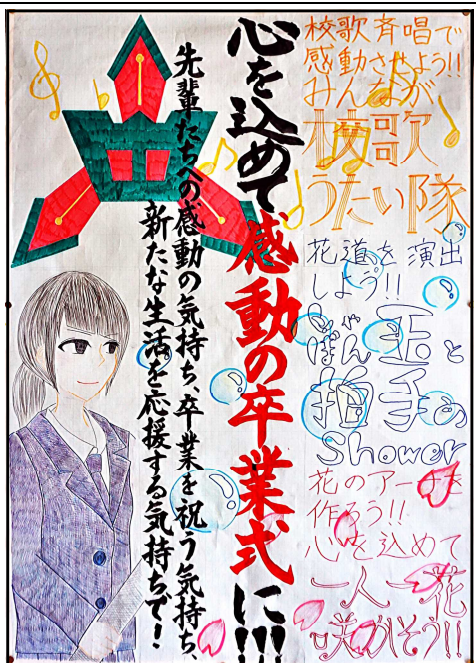 校歌斉唱で
感動させよう!!
みんなが
校歌
うたい隊
花道を演出
しよう!!
しゃぼん玉と
拍手の
Shower
花のアーチを
作ろう!!
心を込めて
一人一花
咲かそう!!
心を込めて感動の卒業式に!!!
先輩たちへの感動の気持ち、卒業を祝う気持ち、
新たな生活を応援する気持ちで!
中